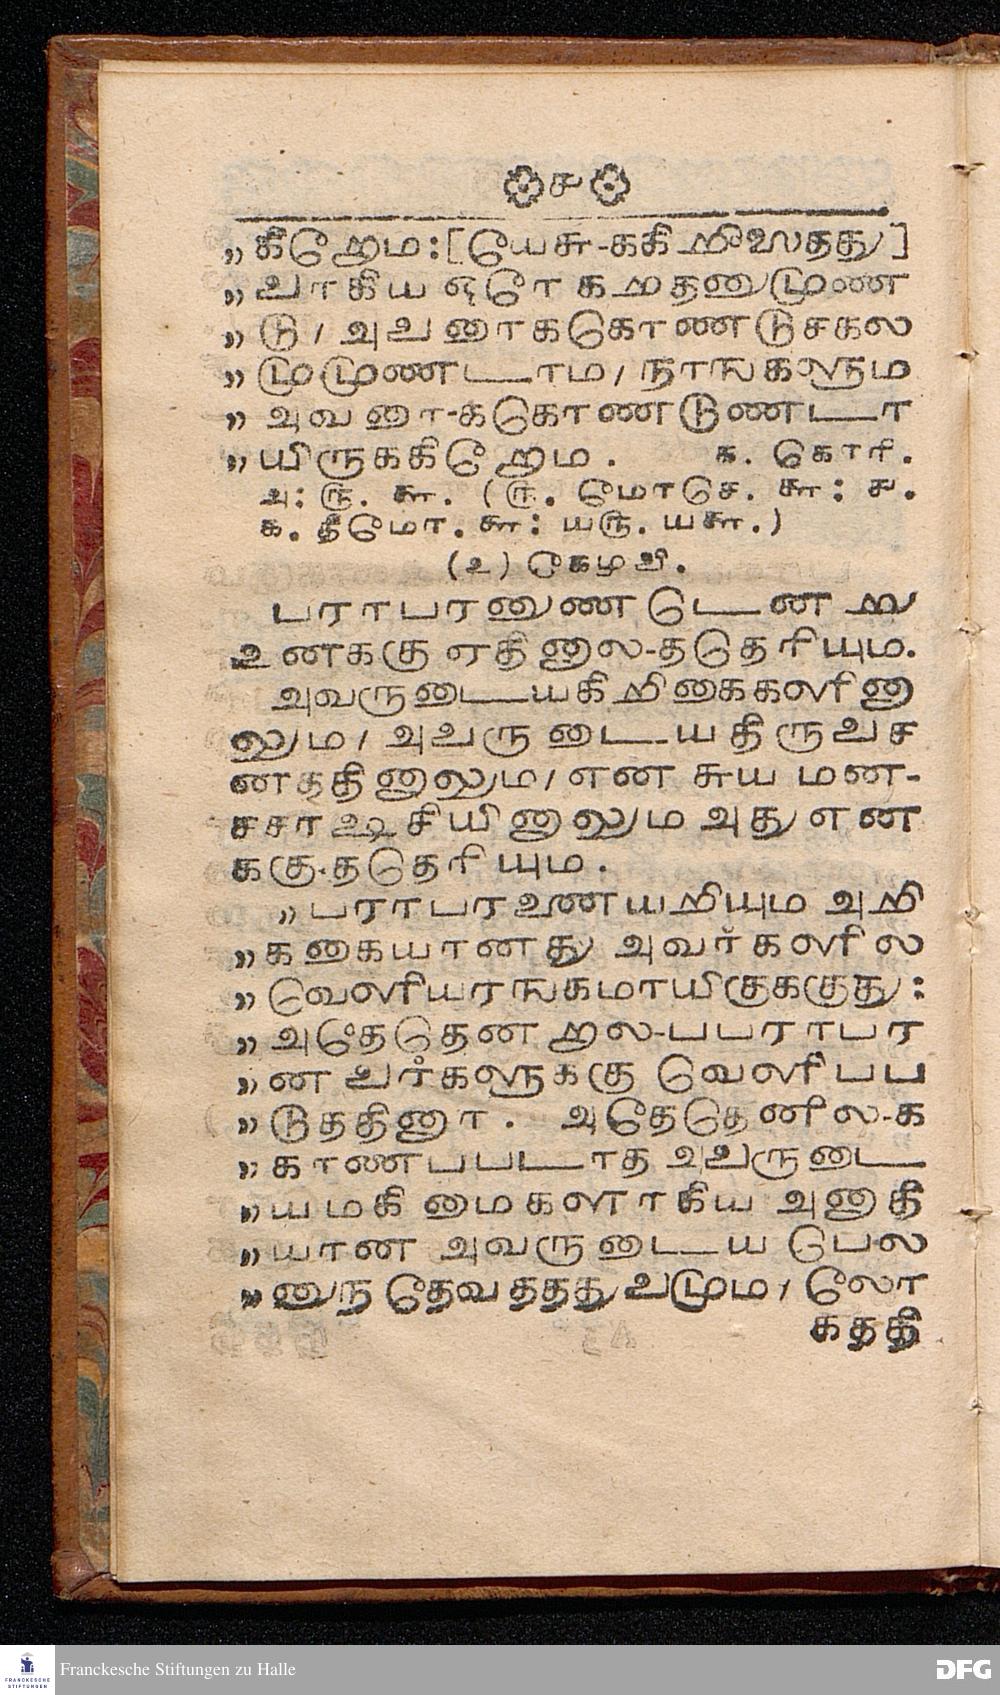 ௪
,, கிறோம: [யேசு-ககிறிஸ்தது]
,, வாகிய ஒரே கறததனுமுண
,, டு, அவனாககொணடுசகல
,, முமுணடாம, நாஙகளும
,, அவனா-ககொணடுணடா
,, யிருககிறோம. க. கொரி.
அ: ரு. ௬. (ரு. மோசெ. ௬: ௪.
க. தீமோ. ௬: யரு. ய௬.)
(உ) கேழவி.
பராபரனுணடெனறு
உனககு ஏதினால-ததெரியும.
அவருடையகிறிகைகளினா
லும, அவருடையதிருவச
னததினாலும, என சுய மன-
சசாடசியினாலும அது என
ககு-ததெரியும.
,, பராபரனையறியும அறி
,, ககையானது அவர்களில
,, வெளியரஙகமாயிருககுது:
,, அதேதெனறால-பபராபர
,, ன அவர்களுககு வெளிபப
,, டுததினார. அதேதெனில-க
,, காணபபடாத அவருடை
,, யமகிமைகளாகிய அனாதி
,, யான அவருடைய பெல
,, னுந தேவதததுவமும, லோ
கததி
Franckesche Stiftungen zu Halle
FRANCKESCHE
STIFTUNGEN
DFG